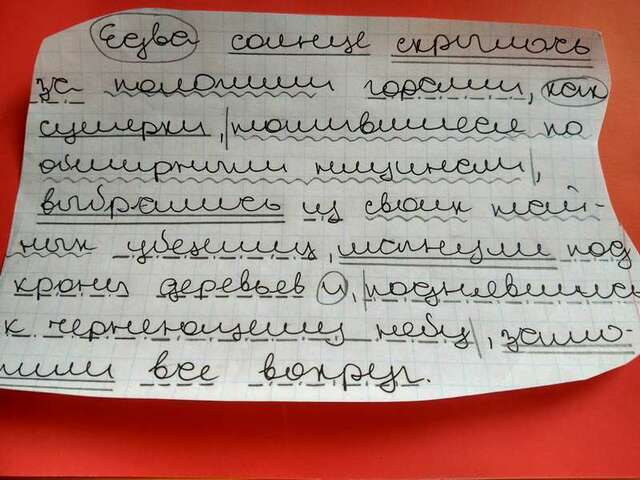 Едва солнце скрылось
за пологими горами, как
сумерки, таившиеся по
обширным низинам,
выбрались из своих тай-
ных убежищ, шагнули под
кроны деревьев и, поднявшись
к чернеющему небу, зато-
пили все вокруг.